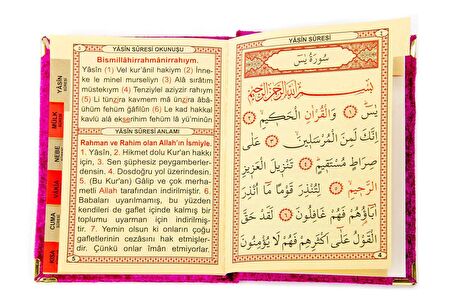 YÂSİN SÛRESİ OKUNUŞU
Bismillâhirrahmânirrahıym.
Yâsîn (1) Vel kur'ânil hakiym (2) İnne-
ke le minel murseliyn (3) Alâ sırâtim
müstekıym (4) Tenziylel aziyzir rahıym
(5) Li tünzira kavmem mâ ünzira âbâ-
ühüm fehüm ğâfilûn (6) Le kad hakkal
kavlü alâ ekserihim fehüm lâ yü'minûn
YÂSİN SÛRESİ ANLAMI
Rahman ve Rahim olan Allah'ın İsmiyle.
1. Yâsîn, 2. Hikmet dolu Kur'an hakkı
için, 3. Sen şüphesiz peygamberler-
densin. 4. Dosdoğru yol üzerindesin.
5. (Bu Kur'an) Gâlip ve çok merha-
metli Allah tarafından indirilmiştir. 6.
Babaları uyarılmamış, bu yüzden
kendileri de gaflet içinde kalmış bir
toplumu uyarman için indirilmiş-
tir. 7. Yemin olsun ki onların çoğu
gafletlerinin cezasını hak etmişler-
dir. Çünkü onlar îmân etmiyorlar.
5
YÂSİN
SÛRESİ
MÜLK
NEBE
VAKIA
CUMA
KISA
YÂSİN SÛRESİ
سُورَةُ يٰسٓ
بِسْمِ اللّٰهِ الرَّحْمٰنِ الرَّحِيمِ
يٰسٓ ﴿١﴾ وَالْقُرْاٰنِ الْحَكِيمِ ﴿٢﴾
اِنَّكَ لَمِنَ الْمُرْسَلِينَ ﴿٣﴾ عَلٰى
صِرَاطٍ مُسْتَقِيمٍ ﴿٤﴾ تَنْزِيلَ الْعَزِيزِ
الرَّحِيمِ ﴿٥﴾ لِتُنْذِرَ قَوْمًا مَٓا اُنْذِرَ
اٰبَٓاؤُ۬هُمْ فَهُمْ غَافِلُونَ ﴿٦﴾ لَقَدْ حَقَّ
الْقَوْلُ عَلٰٓى اَكْثَرِهِمْ فَهُمْ لَا يُؤْمِنُونَ
4